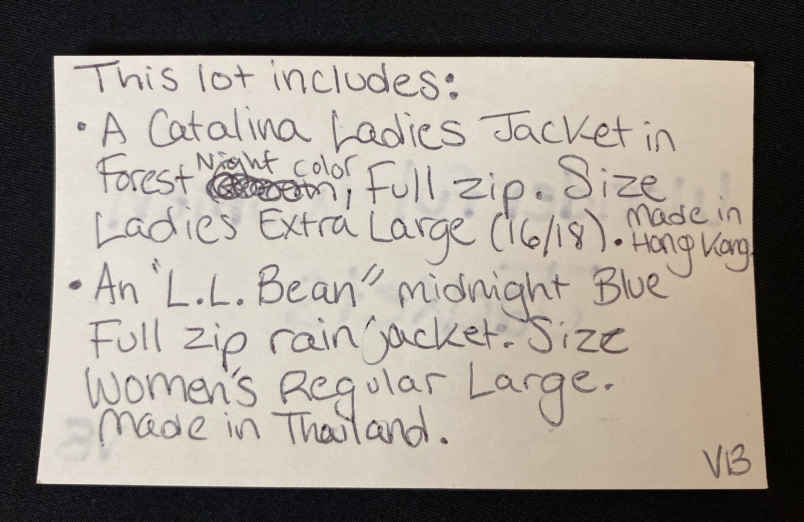 This lot includes:
• A Catalina Ladies Jacket in
Forest Night color, Full zip. Size
Ladies Extra Large (16/18). made in Hong Kong.
• An "L.L. Bean" midnight Blue
Full zip rain jacket. Size
Women's Regular Large.
Made in Thailand.
VB